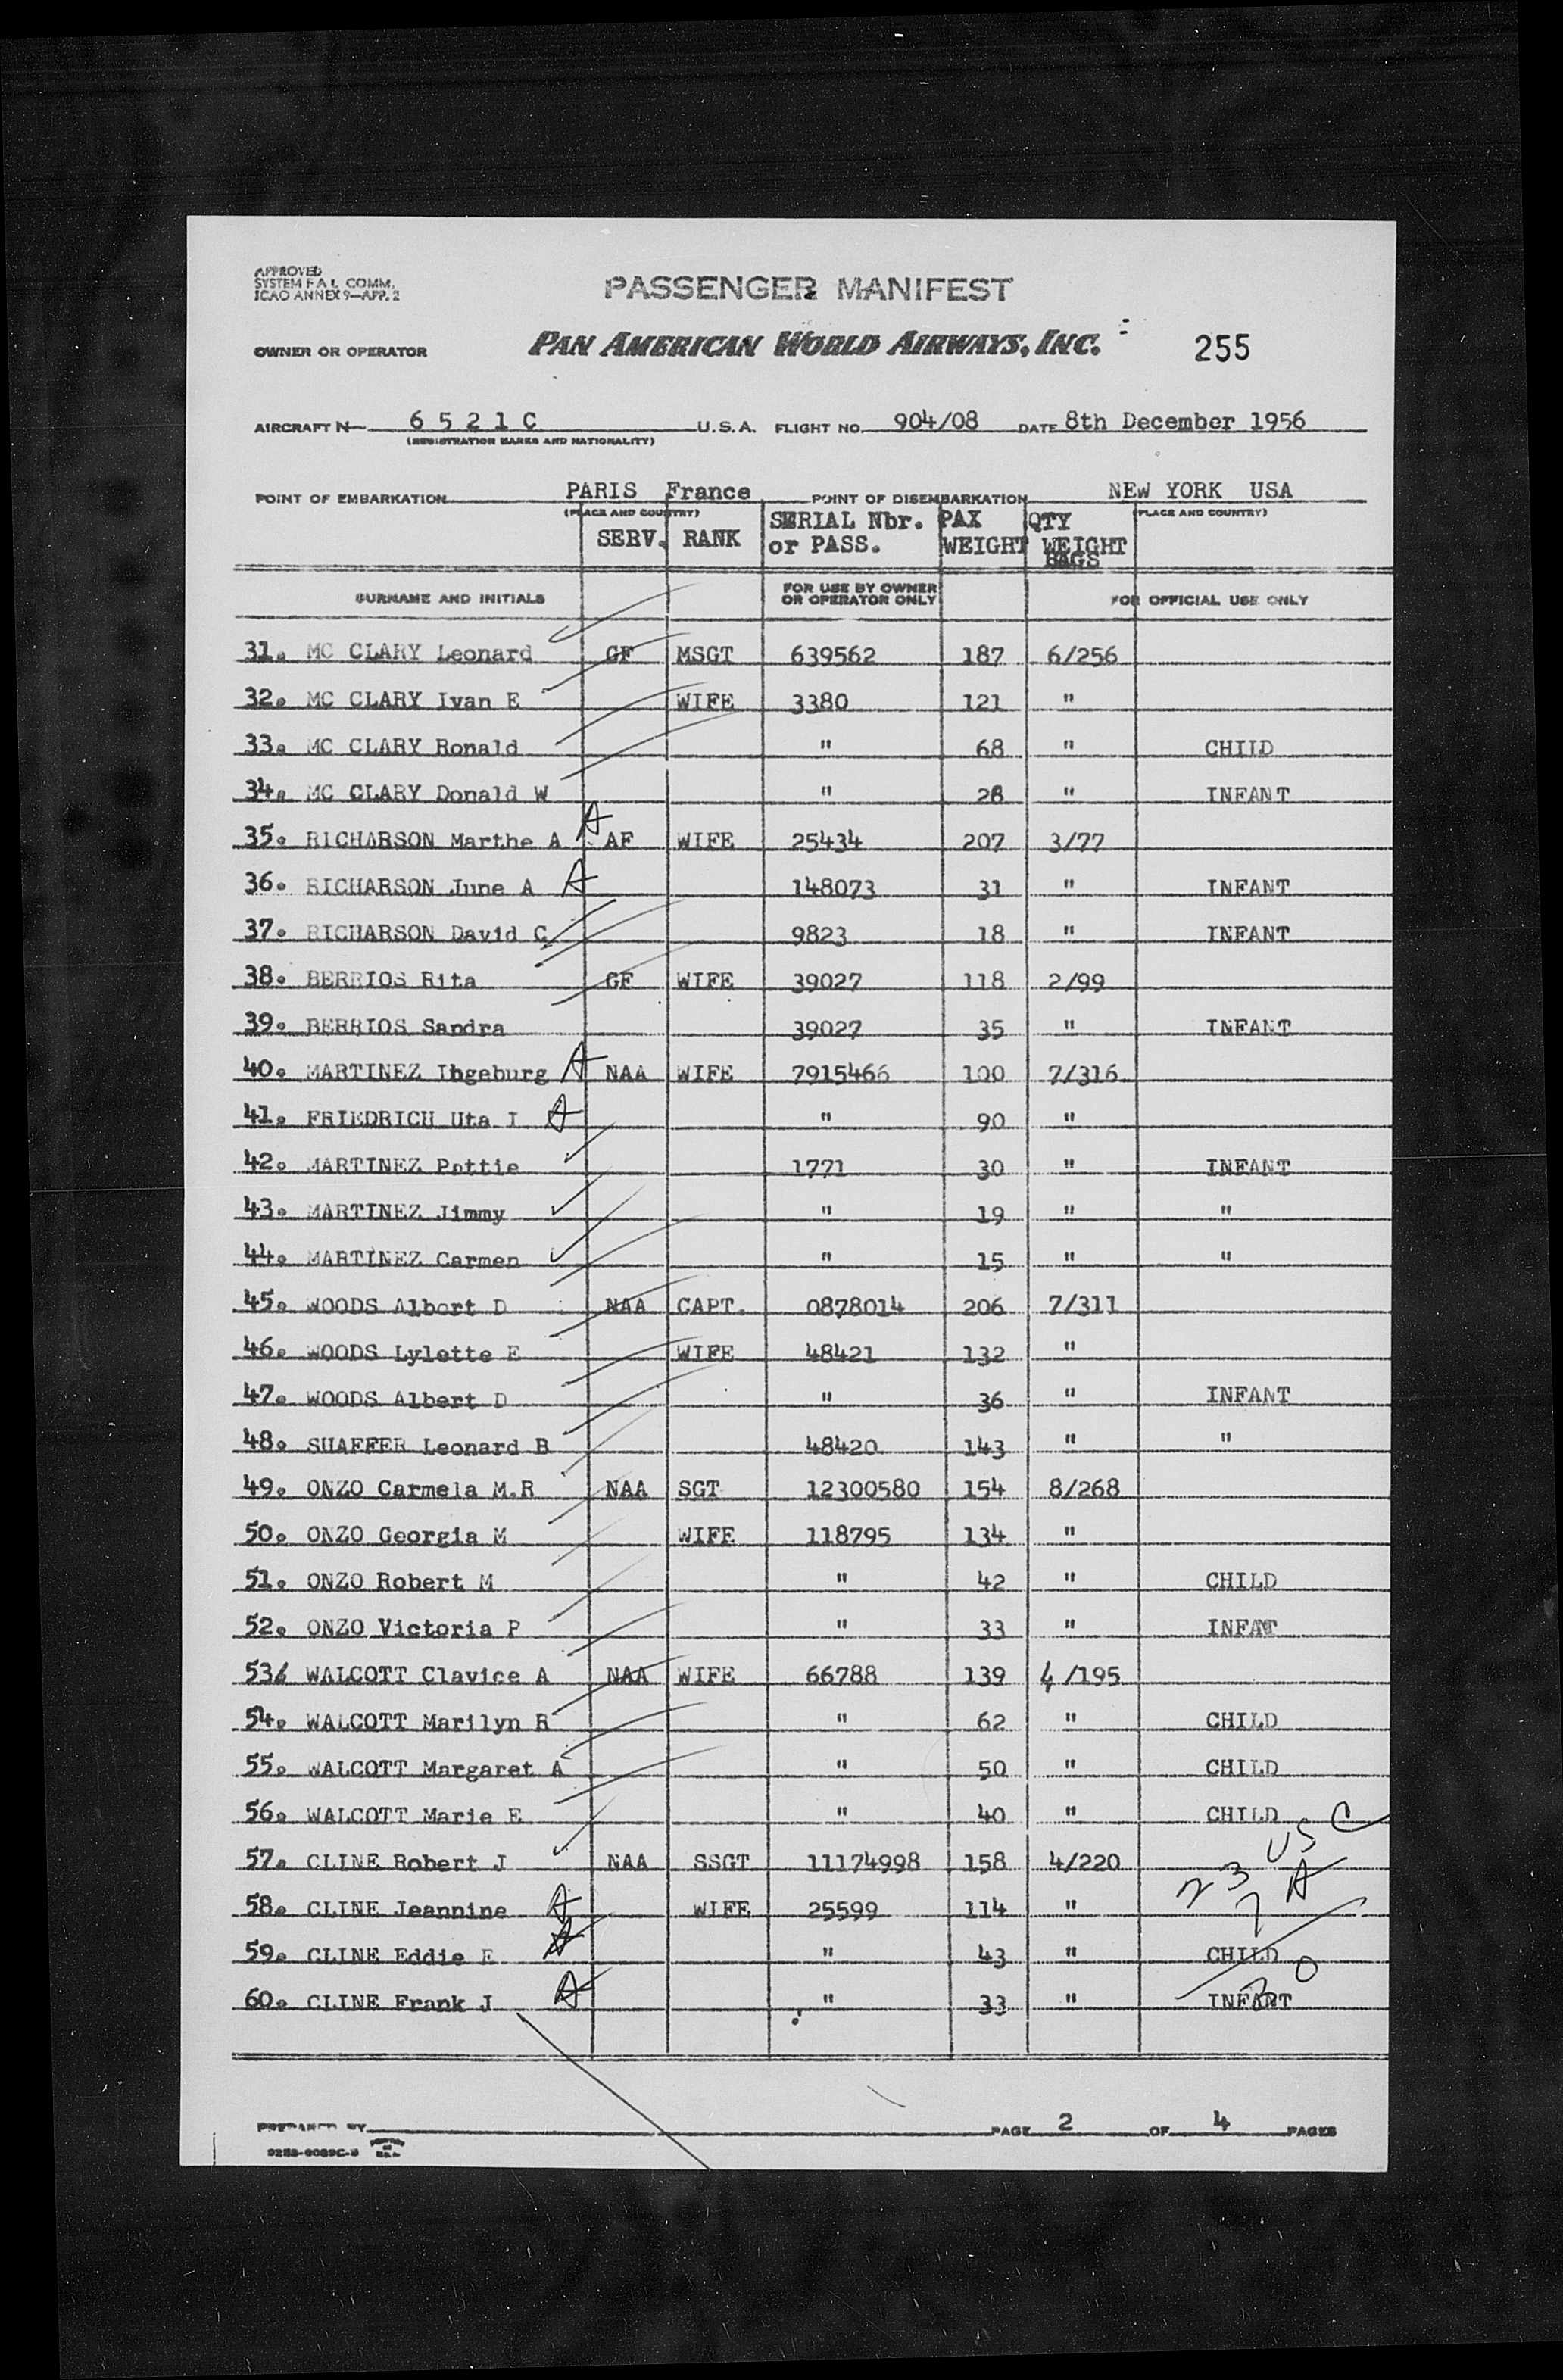 APPROVED
SYSTEM F A L COMM.
ICAO ANNEX 9—APP. 2
PASSENGER MANIFEST
OWNER OR OPERATOR PAN AMERICAN WORLD AIRWAYS, INC. 255
AIRCRAFT N 6 5 2 1 C U.S.A. FLIGHT NO. 904/08 DATE 8th December 1956
(REGISTRATION MARKS AND NATIONALITY)
POINT OF EMBARKATION PARIS France POINT OF DISEMBARKATION NEW YORK USA
(PLACE AND COUNTRY) (PLACE AND COUNTRY)
SERV. RANK SERIAL Nbr. or PASS. PAX WEIGHT QTY WEIGHT BAGS
SURNAME AND INITIALS FOR USE BY OWNER OR OPERATOR ONLY FOR OFFICIAL USE ONLY
31. MC CLARY Leonard GF MSGT 639562 187 6/256
32. MC CLARY Ivan E WIFE 3380 121 "
33. MC CLARY Ronald " 68 " CHILD
34. MC CLARY Donald W " 28 " INFANT
35. RICHARSON Marthe A A AF WIFE 25434 207 3/77
36. RICHARSON June A A 148073 31 " INFANT
37. RICHARSON David C 9823 18 " INFANT
38. BERRIOS Rita GF WIFE 39027 118 2/99
39. BERRIOS Sandra 39027 35 " INFANT
40. MARTINEZ Ibgeburg A NAA WIFE 7915466 100 7/316
41. FRIEDRICH Uta I A " 90 "
42. MARTINEZ Pattie 1771 30 " INFANT
43. MARTINEZ Jimmy " 19 " "
44. MARTINEZ Carmen " 15 " "
45. WOODS Albert D NAA CAPT. 0878014 206 7/311
46. WOODS Lylette E WIFE 48421 132 "
47. WOODS Albert D " 36 " INFANT
48. SHAFFER Leonard B 48420 143 " "
49. ONZO Carmela M.R NAA SGT 12300580 154 8/268
50. ONZO Georgia M WIFE 118795 134 "
51. ONZO Robert M " 42 " CHILD
52. ONZO Victoria P " 33 " INFAT
53. WALCOTT Clavice A NAA WIFE 66788 139 4/195
54. WALCOTT Marilyn R " 62 " CHILD
55. WALCOTT Margaret A " 50 " CHILD
56. WALCOTT Marie E " 40 " CHILD
57. CLINE Robert J NAA SSGT 11174998 158 4/220 23 USC
58. CLINE Jeannine A WIFE 25599 114 " 7 A
59. CLINE Eddie E A " 43 " CHILD
60. CLINE Frank J A " 33 " INFANT 30
PREPARED BY PAGE 2 OF 4 PAGES